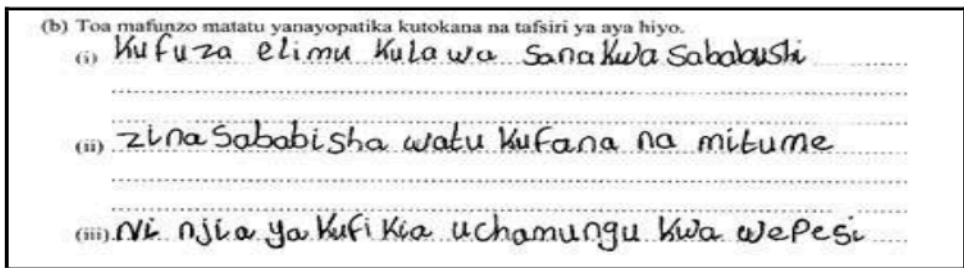 (b) Toa mafunzo matatu yanayopatika kutokana na tafsiri ya aya hiyo.
(i) Kufuza elimu kulawa sana kwa sababushi
(ii) zina sababisha watu kufana na mitume
(iii) Ni njia ya kufikia uchamungu kwa wepesi